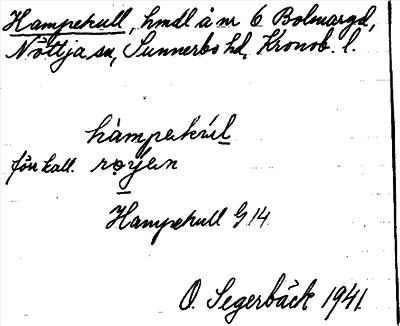 Hampekull, hmdl å nr 6 Bolmargd,
Nöttja sn, Sunnerbo hd, Kronob. l.
hàmpekúl
förr kall. røyen
Hampekull G 14
O. Segerbäck 1941